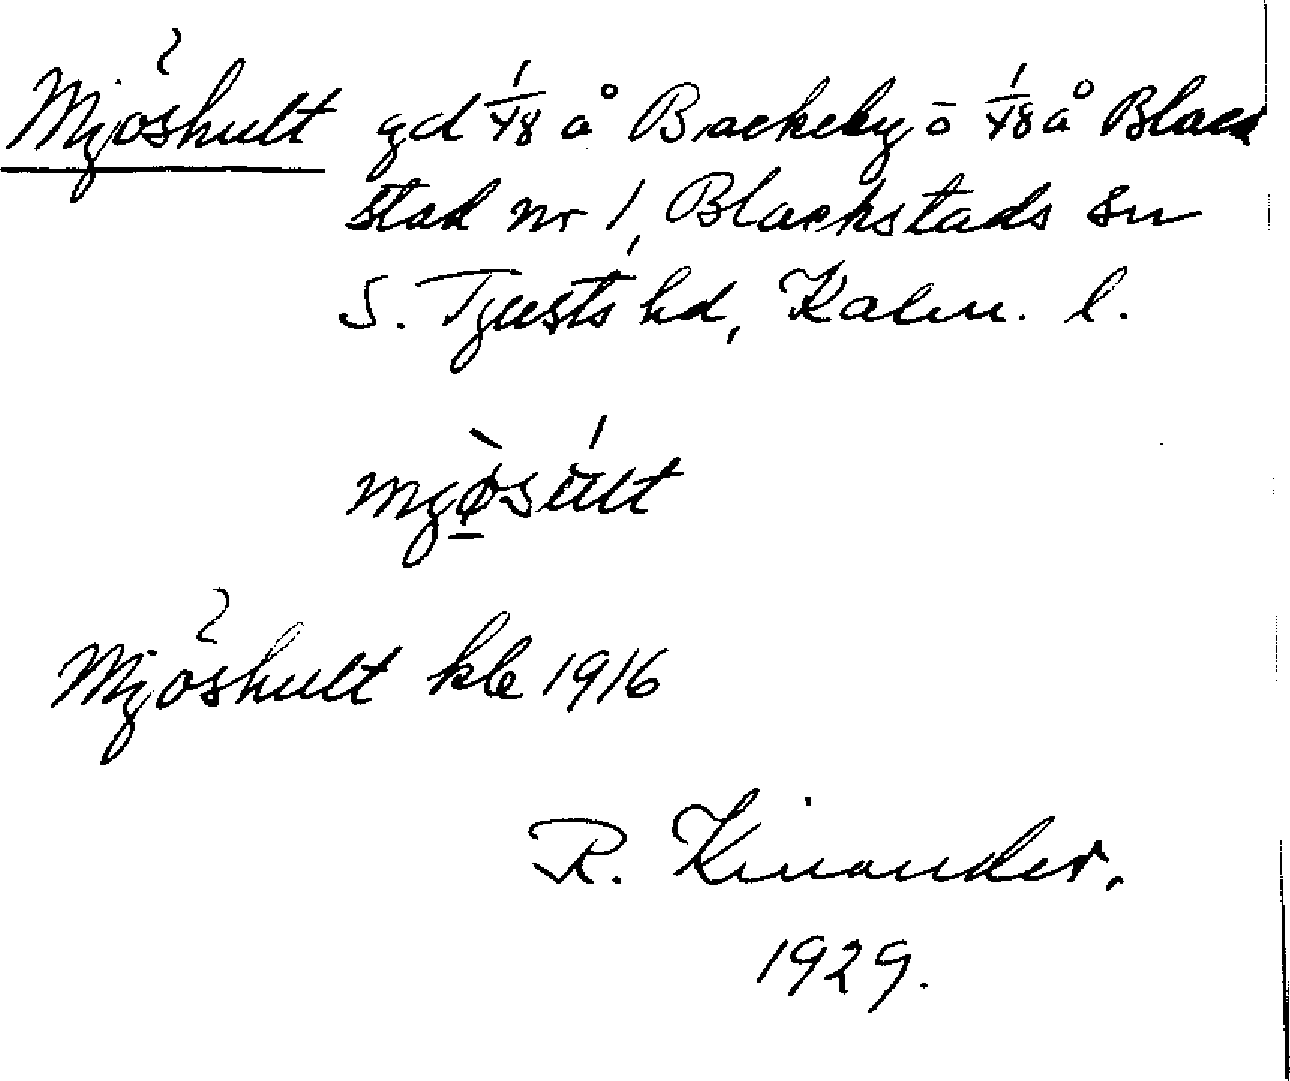 Mjöshult gd 1/48 å Backeby ō 1/48 å Black
stad nr 1, Blackstads sn
S. Tjusts hd, Kalm. l.
mjø̀súlt
Mjöshult kle 1916
R. Kinander.
1929.